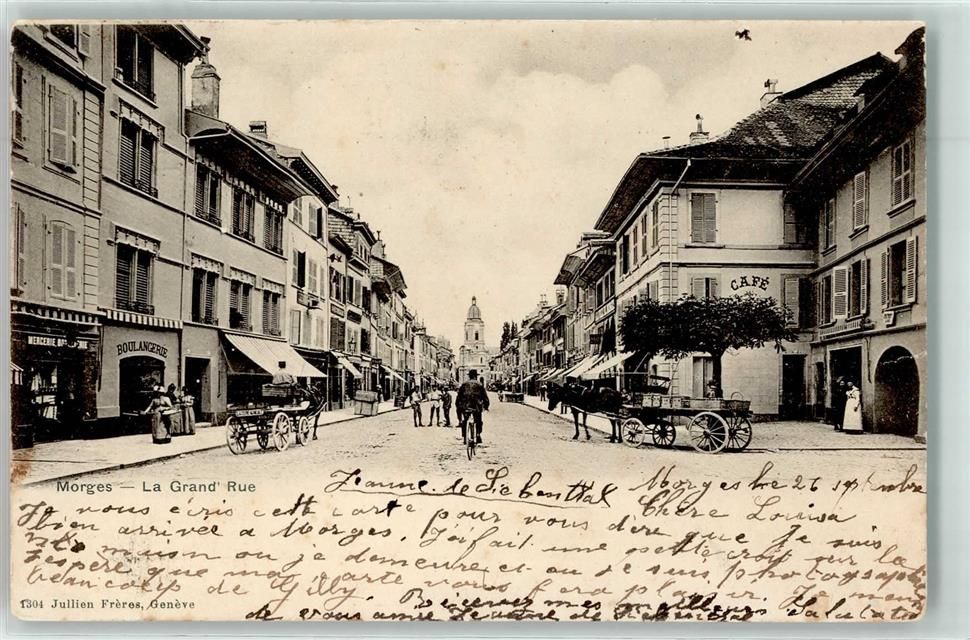 MERCERIE
BOULANGERIE
CAFÉ
Morges — La Grand' Rue
1304 Jullien Frères, Genève
Jeanne de Siebenthal Morges le 26 septembre
Chère Louisa
Je vous écris cette carte pour vous dire que je suis
bien arrivée a Morges. J'ai fait une petite croix sur la
maison ou je demeure et ou je suis photographie
J'espère que ma carte vous fera plaisir
beaucoup de Gilly. Recevez mes meilleurs Salutations
de vous amie Jeanne de Siebenthal